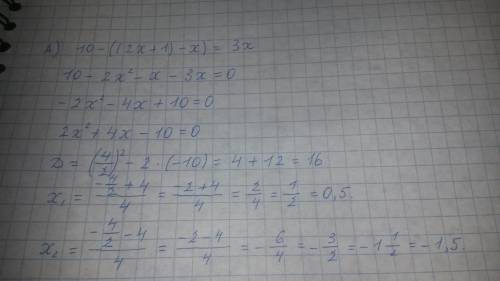 А) 10-((2x+1)-x)=3x
10-2x²-x-3x=0
-2x²-4x+10=0
2x²+4x-10=0
D=(4/2)²-2·(-10)=4+12=16
x₁=(-4/2+4)/4=(-2+4)/4=2/4=1/2=0,5.
x₂=(-4/2-4)/4=(-2-4)/4=-6/4=-3/2=-1 1/2=-1,5.